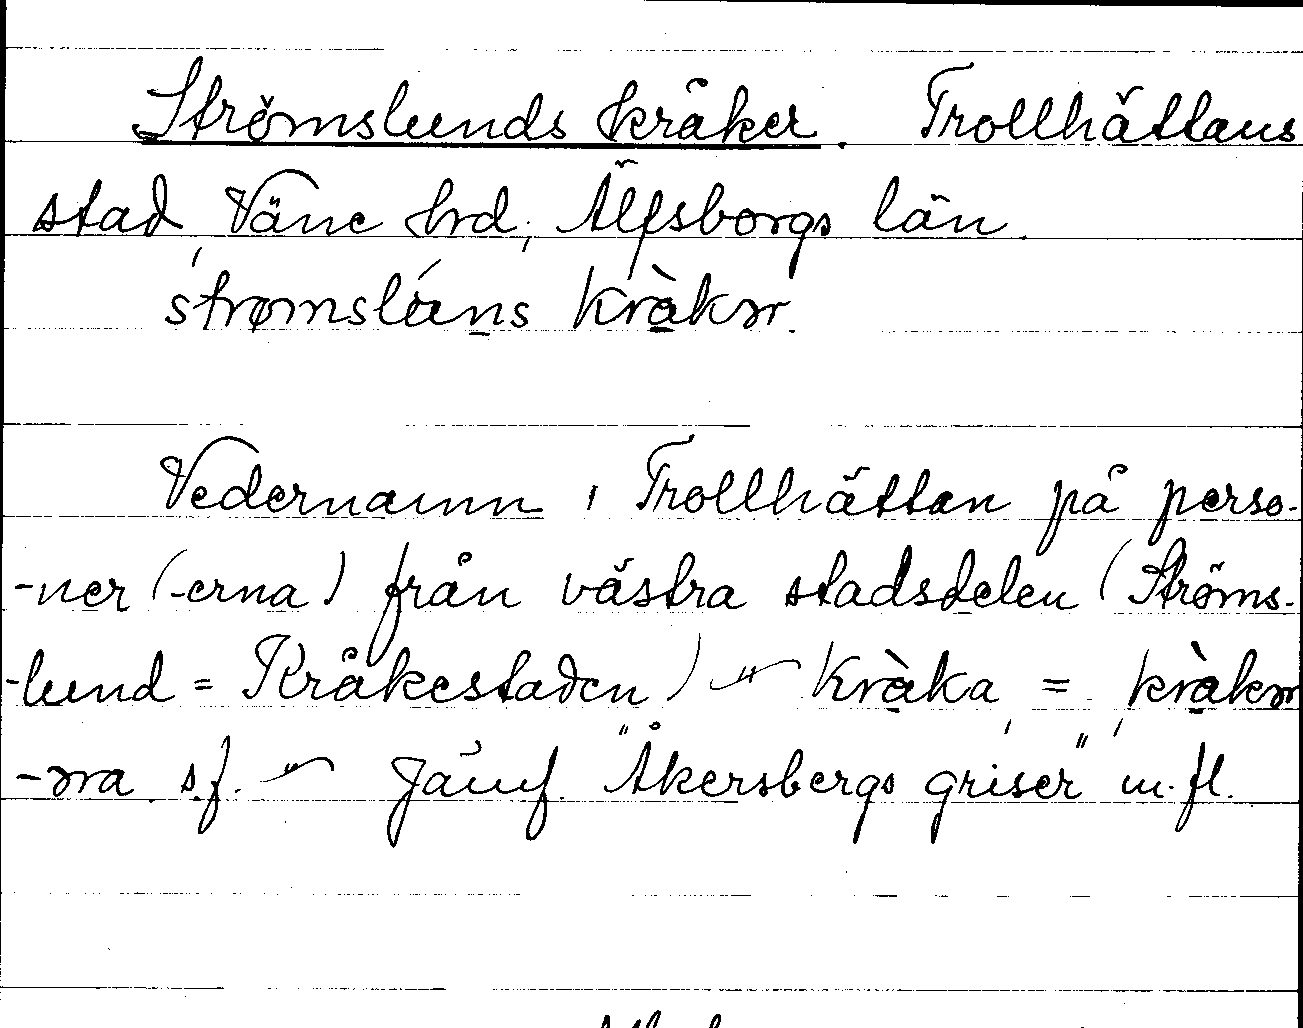 Strömslunds kråker. Trollhättans
stad, Väne hrd, Älfsborgs län.
strømsláns kràkər.
Vedernamn i Trollhättan på perso-
-ner (-erna) från västra stadsdelen (Ströms-
-lund = Kråkestaden) – " – kràka, =, kràkər
-əra s.f. – " – Jämf. "Åkersbergs griser" m.fl.